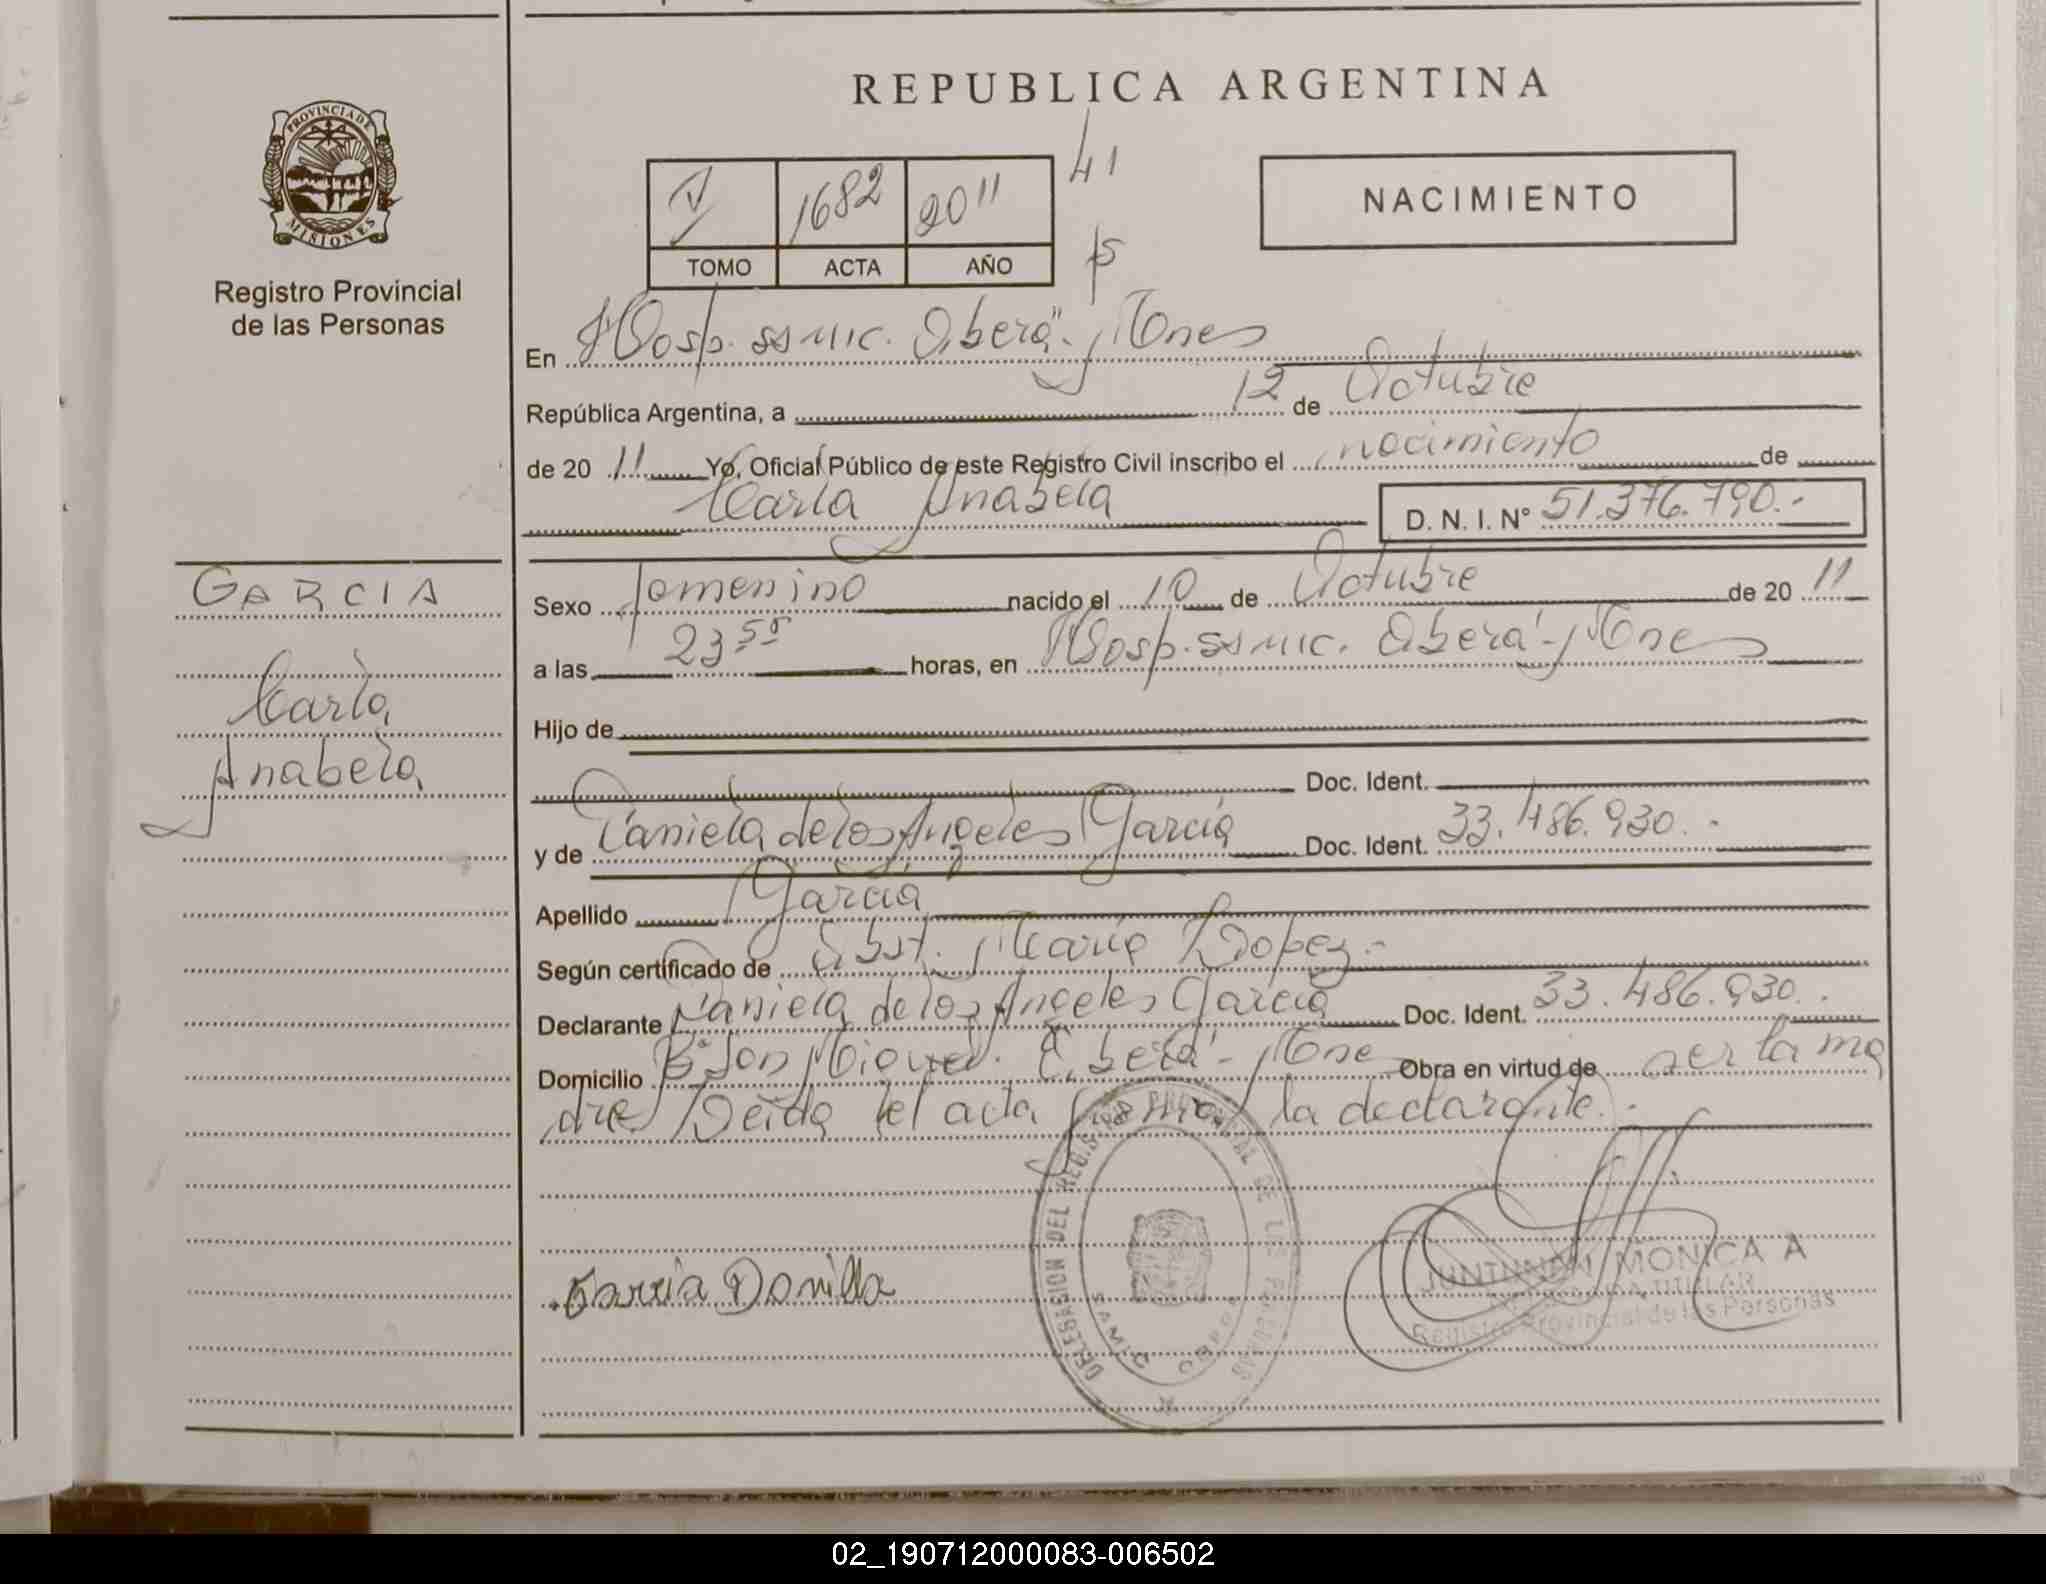 REPUBLICA ARGENTINA
PROVINCIA DE
MISIONES
Registro Provincial
de las Personas
V 1682 2011
TOMO ACTA AÑO
41
NACIMIENTO
En Hosp. SSMIC. Oberá - Mnes
República Argentina, a 12 de Octubre
de 20 11 Yo, Oficial Público de este Registro Civil inscribo el nacimiento de
Carla Anabela D. N. I. Nº 51.376.790.-
GARCIA
Carla
Anabela
Sexo femenino nacido el 10 de Octubre de 20 11
a las 23 58 horas, en Hosp. SSMIC. Oberá - Mnes
Hijo de
Doc. Ident.
y de Daniela de los Angeles Garcia Doc. Ident. 33.486.930.-
Apellido Garcia
Según certificado de Obst. Maria Lopez.-
Declarante Daniela de los Angeles Garcia Doc. Ident. 33.486.930.-
Domicilio Bº San Miguel. Oberá - Mnes Obra en virtud de ser la ma
dre Leida el acta firma la declarante.-
DELEGACION DEL REGISTRO PROVINCIAL DE LAS PERSONAS
SAMIC OBERA
MONICA A
TITULAR
Registro Provincial de las Personas
02_190712000083-006502